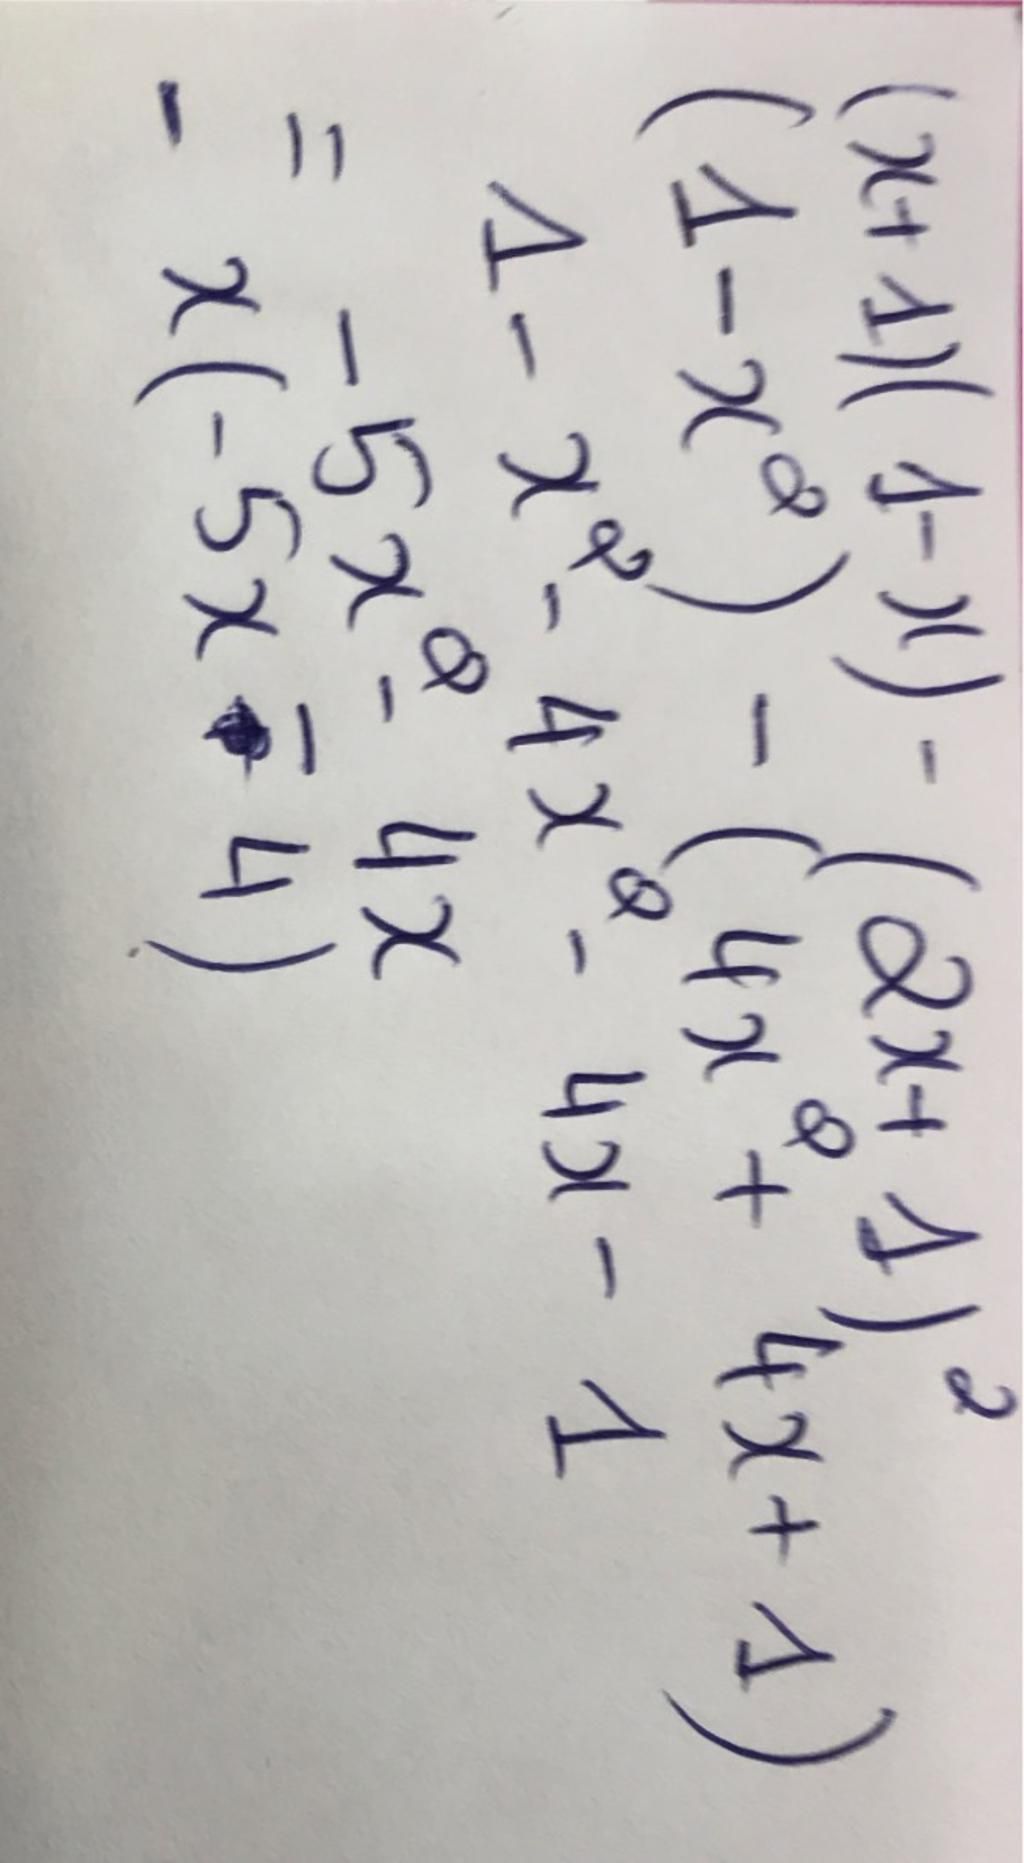 (x+1)(1-x) - (2x+1)²
(1-x²) - (4x²+4x+1)
1-x²-4x²-4x-1
= -5x²-4x
- x(-5x-4)